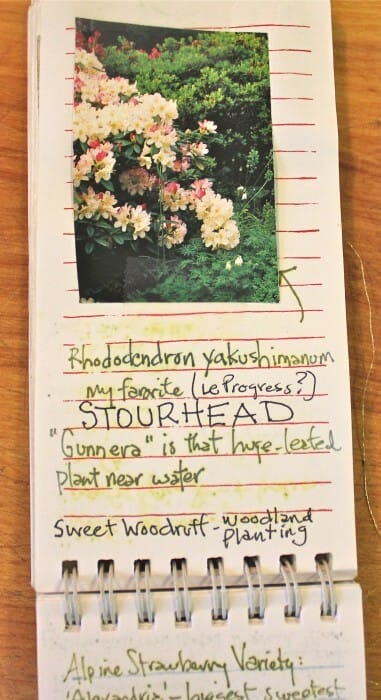 Rhododendron yakushimanum
my favorite (ie Progress?)
STOURHEAD
"Gunnera" is that huge-leafed
plant near water
Sweet Woodruff - woodland
planting
Alpine Strawberry Variety:
'Alexandria' - biggest, sweetest